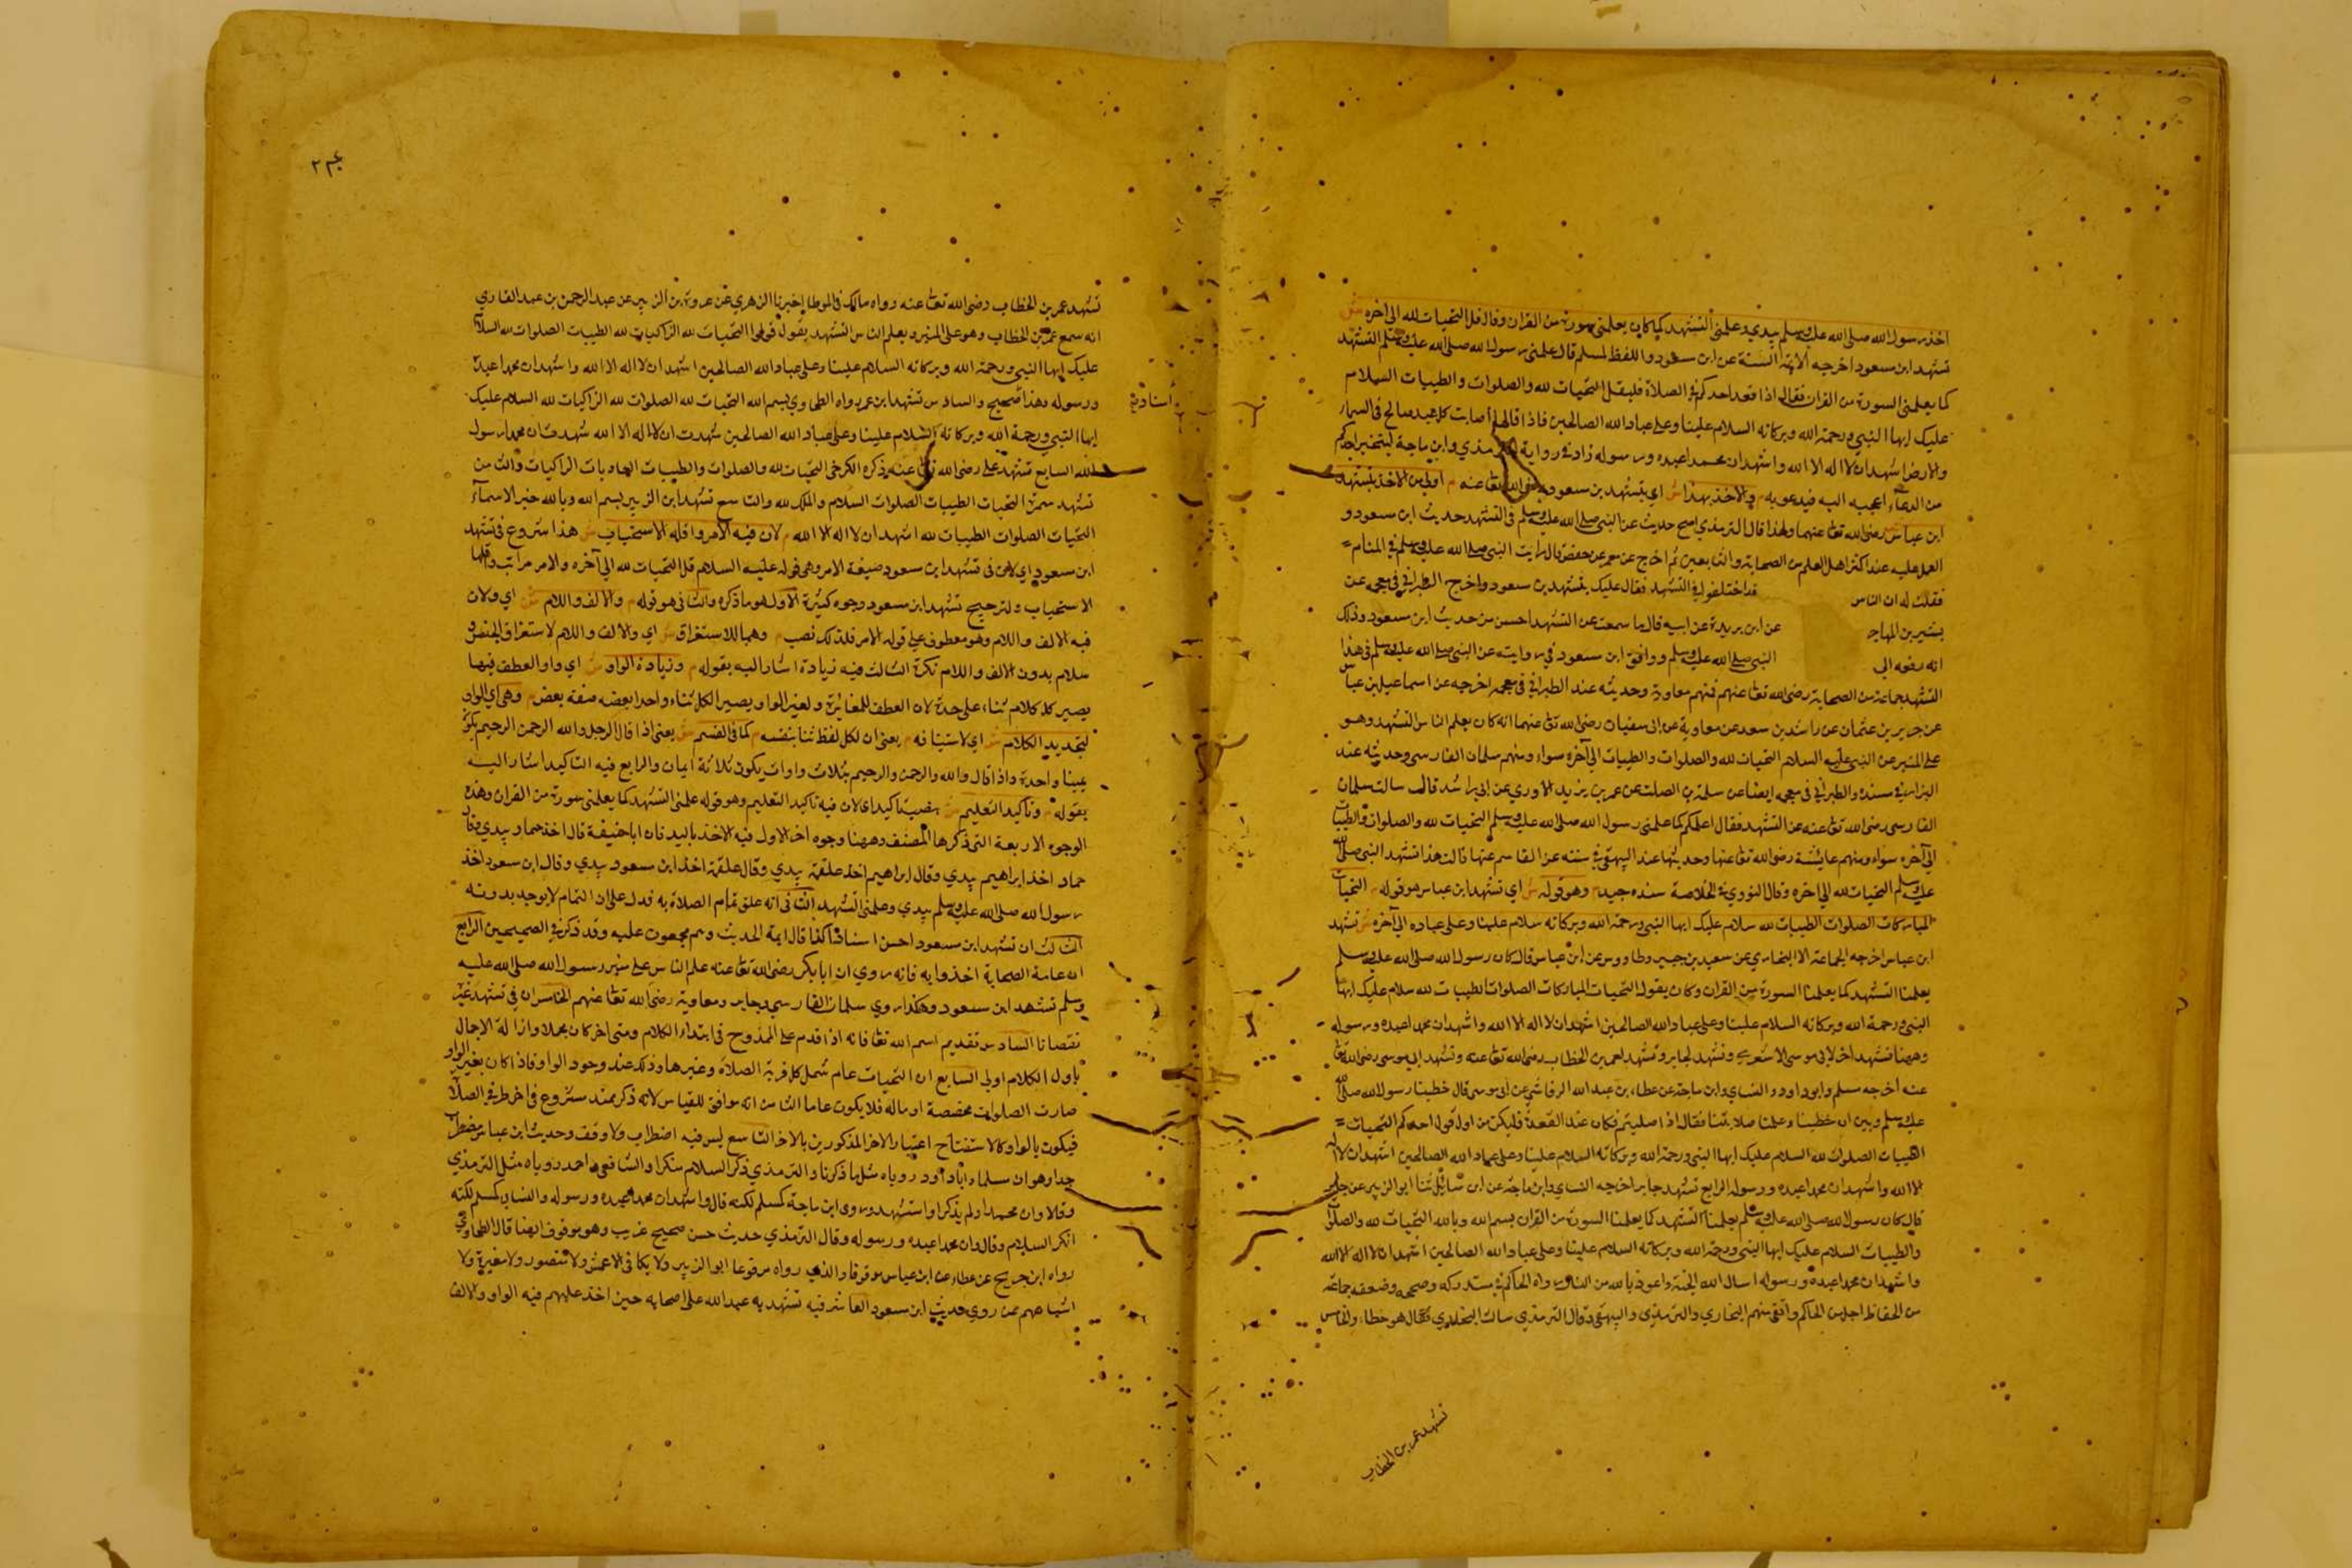 اخذ رسول الله صلى الله عليه وسلم بيدي وعلمني التشهد كما كان يعلمني سورة من القران وقال قل التحيات لله الى اخره ش
تشهد ابن مسعود اخرجه الائمة الستة عن ابن مسعود واللفظ لمسلم قال علمني رسول الله صلى الله عليه وسلم التشهد
كما يعلمني السورة من القران فقال اذا قعد احدكم في الصلاة فليقل التحيات لله والصلوات والطيبات السلام
عليك ايها النبي ورحمة الله وبركاته السلام علينا وعلى عباد الله الصالحين فاذا قالها اصابت كل عبد صالح في السماء
والارض اشهد ان لا اله الا الله واشهدان محمدا عبده ورسوله زاد في رواية الترمذي وابن ماجة ليتخير احدكم
من الدعاء اعجبه اليه فيدعو به م والاخذ بهذا ش اي بتشهد بن مسعود رضى الله تعا عنه م اولى من الاخذ بتشهد
ابن عباس رضى الله تعا عنهما ولهذا قال الترمذي اصح حديث عن النبي صلى الله عليه وسلم في التشهد حديث ابن مسعود و
العمل عليه عند اكثر اهل العلم من الصحابة والتابعين ثم اخرج عن معمر عن خصف قال رايت النبي صلى الله عليه وسلم في المنام =
فقلت له ان الناس قد اختلفوا في التشهد فقال عليك بتشهد بن مسعود واخرج الطبراني في معجمه عن
بشير بن المهاجر عن ابن بريدة عن ابيه قال ما سمعت عن التشهد احسن من حديث ابن مسعود وذلك
انه رفعه الى النبي صلى الله عليه وسلم ووافق ابن مسعود في روايته عن النبي صلى الله عليه وسلم في هذا
التشهد جماعة من الصحابة رضى الله تعا عنهم فمنهم معاوية وحديثه عند الطبراني في معجمه اخرجه عن اسماعيل بن عباس
عن جرير بن عثمان عن راشد بن سعد عن معاوية عن ابى سفيان رضى الله تعا عنهما انه كان يعلم الناس التشهد وهو
على المنبر عن النبي عليه السلام التحيات لله والصلوات والطيبات الى آخره سواء ومنهم سلمان الفارسي وحديثه عند
البزار في مسنده والطبراني في معجمه ايضا عن سلمة بن الصلت عن عمر بن يزيد الازدي عن ابي راشد قال سالت سلمان
الفارسي رضى الله تعا عنه عن التشهد فقال اعلمكم كما علمني رسول الله صلى الله عليه وسلم التحيات لله والصلوات والطيبات
الى آخره سواء ومنهم عائشة رضى الله تعا عنها وحديثها عند البيهقي في سننه عن القاسم عنها قالت هذا تشهد النبي صلى الله
عليه وسلم التحيات لله الى اخره وقال النووي في الخلاصة سنده جيد م وهو قوله ش اي تشهد ابن عباس هو قوله م التحيات
المباركات الصلوات الطيبات لله سلام عليك ايها النبي ورحمة الله وبركاته سلام علينا وعلى عباده الى آخره ش تشهد
ابن عباس اخرجه الجماعة الا البخاري عن سعيد بن جبير وطاووس عن ابن عباس قال كان رسول الله صلى الله عليه وسلم
يعلمنا التشهد كما يعلمنا السورة من القران وكان يقول التحيات المباركات الصلوات الطيبات لله سلام عليك ايها
النبي ورحمة الله وبركاته السلام علينا وعلى عباد الله الصالحين اشهدان لا اله الا الله واشهدان محمدا عبده ورسوله
وههنا تشهد اخر لابى موسى الاشعري وتشهد لجابر وتشهد لعمر بن الخطاب رضى الله تعا عنه وتشهد ابى موسى رضى الله تعا
عنه اخرجه مسلم وابو داود والنساي وابن ماجة عن حطان بن عبد الله الرقاشي عن ابى موسى قال خطبنا رسول الله صلى الله
عليه وسلم وبين ان خطبنا وعلمنا صلاتنا فقال اذا صليتم فكان عند القعدة فليكن من اول قول احدكم التحيات =
الطيبات الصلوات لله السلام عليك ايها النبي ورحمة الله وبركاته السلام علينا وعلى عباد الله الصالحين اشهدان لا اله
الا الله واشهدان محمدا عبده ورسوله الرابع تشهد جابر اخرجه النساي وابن ماجة عن ثنا ابو الزبير عن جابر
قال كان رسول الله صلى الله عليه وسلم يعلمنا التشهد كما يعلمنا السورة من القران بسم الله وبالله التحيات لله والصلوات
والطيبات السلام عليك ايها النبي ورحمة الله وبركاته السلام علينا وعلى عباد الله الصالحين اشهدان لا اله الا الله
واشهدان محمدا عبده ورسوله اسال الله الجنة واعوذ بالله من النار رواه الحاكم في مستدركه وصححه وضعفه جماعة
من الحفاظ اجل من الحاكم واتقى منهم البخاري والترمذي والبيهقي وقال الترمذي سالت البخاري فقال هو خطاء والخامس
تشهد عمر بن الخطاب
تشهد عمر بن الخطاب رضى الله تعا عنه رواه مالك في الموطا اخبرنا الزهري عن عروة بن الزبير عن عبد الرحمن بن عبد القاري
انه سمع عمر بن الخطاب وهو على المنبر ويعلم الناس التشهد يقول قولوا التحيات لله الزاكيات لله الطيبات الصلوات لله السلام
عليك ايها النبي ورحمة الله وبركاته السلام علينا وعلى عباد الله الصالحين اشهدان لا اله الا الله واشهدان محمدا عبده
ورسوله وهذا صحيح والسادس تشهد ابن عمر رواه الطحاوي بسم الله التحيات لله الصلوات لله الزاكيات لله السلام عليك
ايها النبي ورحمة الله وبركاته السلام علينا وعلى عباد الله الصالحين شهدت ان لا اله الا الله شهدت ان محمدا رسول
الله السابع تشهد على رضى الله تعا عنه ذكره الكرخي التحيات لله والصلوات والطيبات الغاديات الزاكيات والثامن
تشهد سمرة التحيات الطيبات الصلوات السلام والملك لله والتاسع تشهد ابن الزبير بسم الله وبالله خير الاسماء
التحيات الصلوات الطيبات لله اشهدان لا اله الا الله م لان فيه الامر واقله الاستحباب ش هذا شروع في تشهد
ابن مسعود اي لان في تشهد ابن مسعود صيغة الامر وهى قوله عليه السلام قل التحيات لله الى آخره والامر مراتب واقلها
الاستحباب ولترجيح تشهد ابن مسعود وجوه كثيرة الاول هو ما ذكره والثاني هو قوله م والالف واللام ش اي ولان
فيه الالف واللام وهو معطوف على قوله الامر فلذلك نصب م وهما للاستغراق ش اي والالف واللام لاستغراق الجنس و
سلام بدون الالف واللام نكرة الثالث فيه زيادة اشار اليه بقوله م وزيادة الواو ش اي واو العطف فيها
يصير كل كلام ثناء على حدة لان العطف للمغايرة ولغير الواو يصير الكل ثناء واحدا بعضه صفة بعض م وهى اي الواو
لتجديد الكلام ش اي لاستينافه م يعنى ان لكل لفظ ثنا بنفسه م كما في القسم ش يعنى اذا قال الرجل والله الرحمن الرحيم يكون
يمينا واحدة واذا قال والله والرحمن والرحيم بثلاث واوات يكون ثلاثة ايمان والرابع فيه التاكيد اشار اليه
بقوله م وتاكيد التعليم ش بنصب تاكيد اى لان فيه تاكيد التعليم وهو قوله علمني التشهد كما يعلمني سورة من القران وهذه
الوجوه الاربعة التي ذكرها المصنف وههنا وجوه اخر الاول فيه الاخذ باليد فان ابا حنيفة قال اخذ حماد بيدي وقال
حماد اخذ ابراهيم بيدي وقال ابراهيم اخذ علقمة بيدي وقال علقمة اخذ ابن مسعود بيدي وقال ابن مسعود اخذ
رسول الله صلى الله عليه وسلم بيدي وعلمني التشهد الثاني انه علق تمام الصلاة به فدل على ان التمام لا يوجد بدونه
الثالث ان تشهد ابن مسعود احسن اسنادا كذا قال ايمة الحديث وهم مجمعون عليه وقد ذكر في الصحيحين الرابع
ان عامة الصحابة اخذوا به فانه روي ان ابا بكر رضى الله تعا عنه علم الناس على منبر رسول الله صلى الله عليه
وسلم تشهد ابن مسعود وهكذا روي سلمان الفارسي وجابر ومعاوية رضى الله تعا عنهم الخامس ان في تشهد غيره
نقصانا السادس تقديم اسم الله تعا فانه اذا قدم على الممدوح في ابتداء الكلام ومتى اخر كان مجملا وازالة الاجمال
باول الكلام اولى السابع ان التحيات عام شمل كل قربة الصلاة وغيرها وذلك عند وجود الواو فاذا كان بغير الواو
صارت الصلوات مخصصة او ماله فلا يكون عاما الثامن انه موافق للقياس لانه ذكر ممتد مشروع في اخر طرفي الصلاة
فيكون بالواو كالاستفتاح اعتبار الاخر المذكورين بالاخر التاسع ليس فيه اضطراب ولا وقف وحديث ابن عباس مضطرب
جدا وهو ان مسلما وابا داود روياه مثل ما ذكرنا والترمذي ذكر السلام منكرا والشافعي واحمد روياه مثل الترمذي
وقالا وان محمدا ولم يذكرا واشهد وروى ابن ماجة كمسلم لكنه قال واشهدان محمدا عبده ورسوله والنسايى كمسلم لكنه
انكر السلام وقال وان محمدا عبده ورسوله وقال الترمذي حديث حسن صحيح غريب وهو موقوف ايضا قال الطحاوي
رواه ابن جريج عن عطاء عن ابن عباس موقوفا والذي رواه مرفوعا ابو الزبير ولا يكافى الاعمش ولا منصور ولا مغيرة ولا
اشباههم ممن روي حديث ابن مسعود العاشر فيه تشهد به عبد الله على اصحابه حين اخذ عليهم فيه الواو والالف